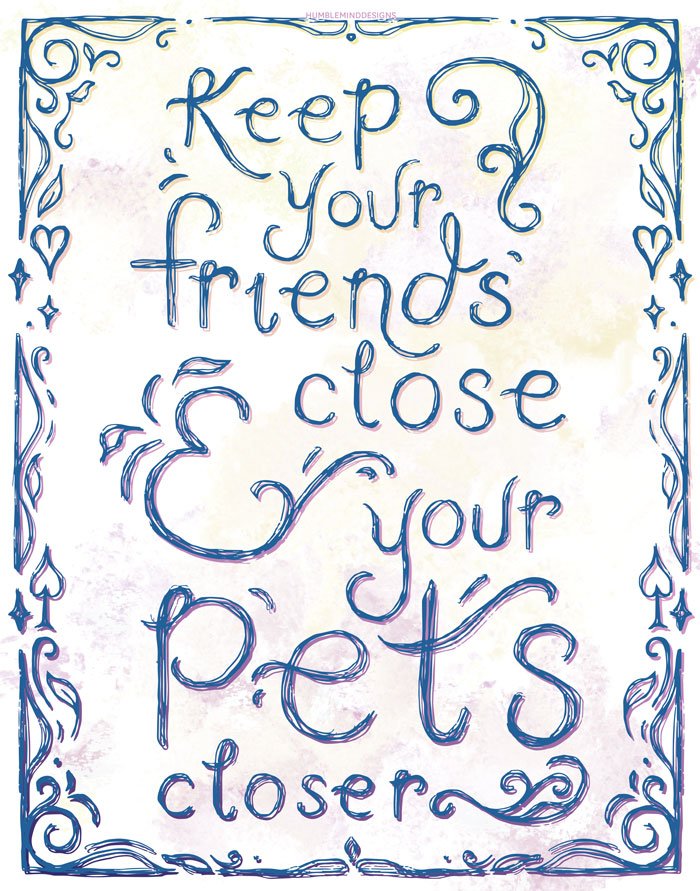 HUMBLEMINDDESIGNS
Keep
your
friends
close
& your
Pets
closer